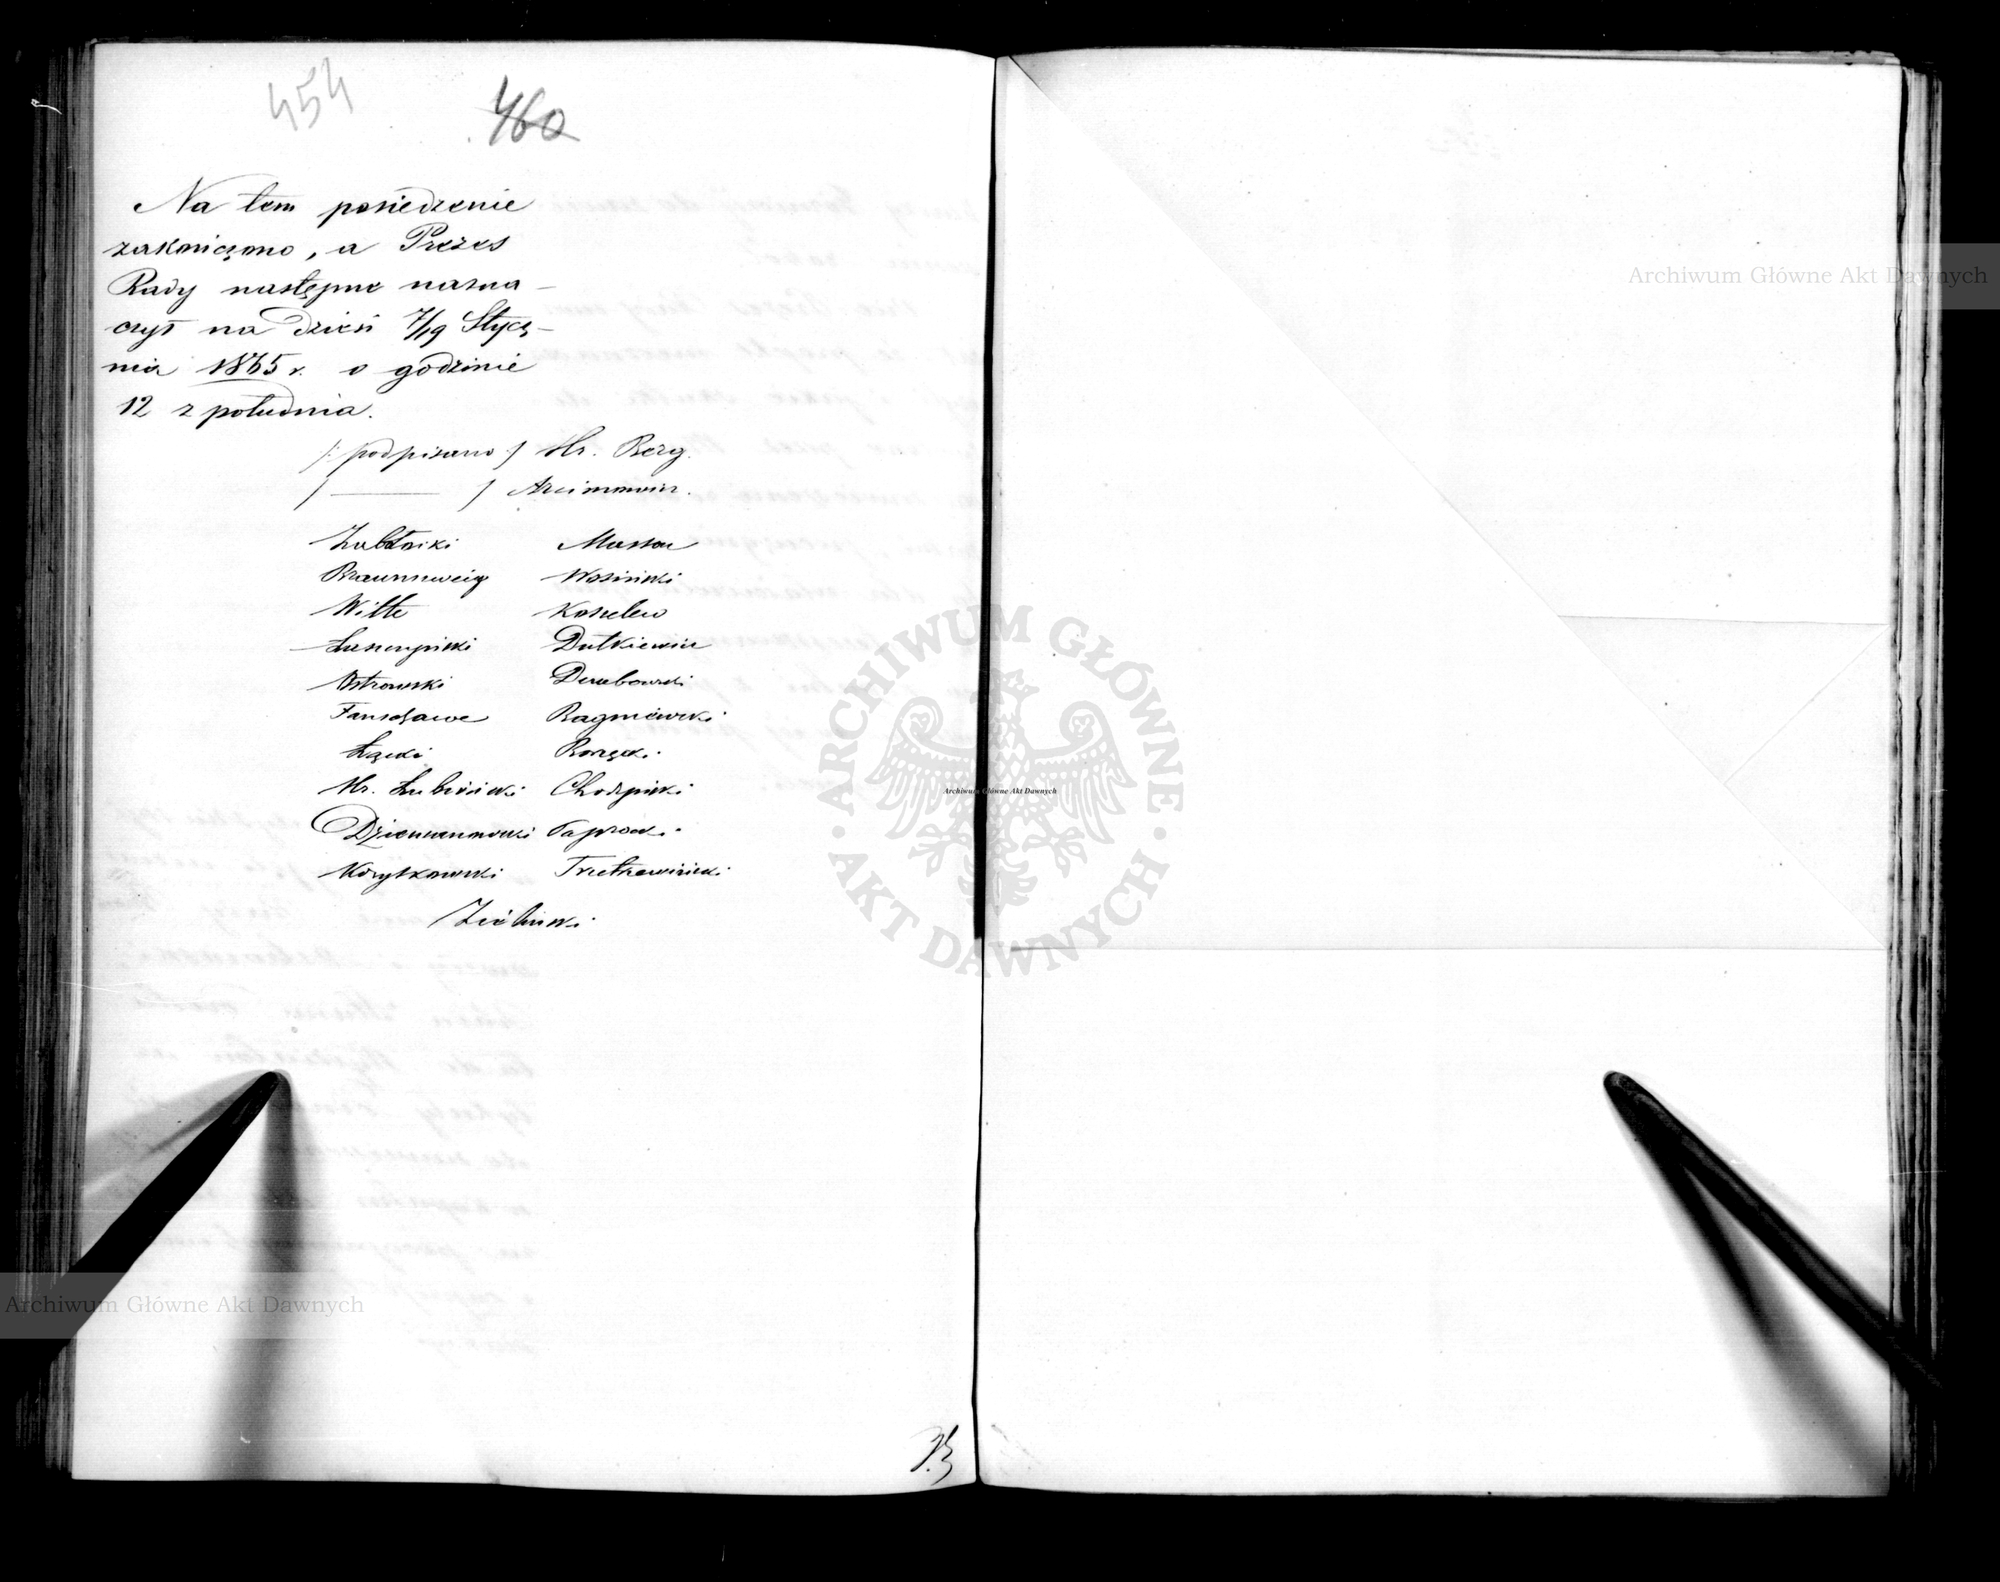 454
460
Na tem posiedzenie
zakończono, a Prezes
Rady następne nazna-
czył na dzień 7/19 Stycz-
nia 1865 r. o godzinie
12 z południa.
/: podpisano :/ Hr. Berg.
/ ——— / Arcimowicz.
Zabłocki Massou
Braunschweig Wosiński
Witte Koszelew
Łuszczyński Dutkiewicz
Ostrowski Dembowski
Fanshawe Bagniewski
Łącki Borzęcki
Hr. Łubieński Chodzyński
Dziewanowski Paprocki
Korytkowski Trzetrzewiński
Zieliński
Archiwum Główne Akt Dawnych
ARCHIWUM GŁÓWNE AKT DAWNYCH
Archiwum Główne Akt Dawnych
Archiwum Główne Akt Dawnych